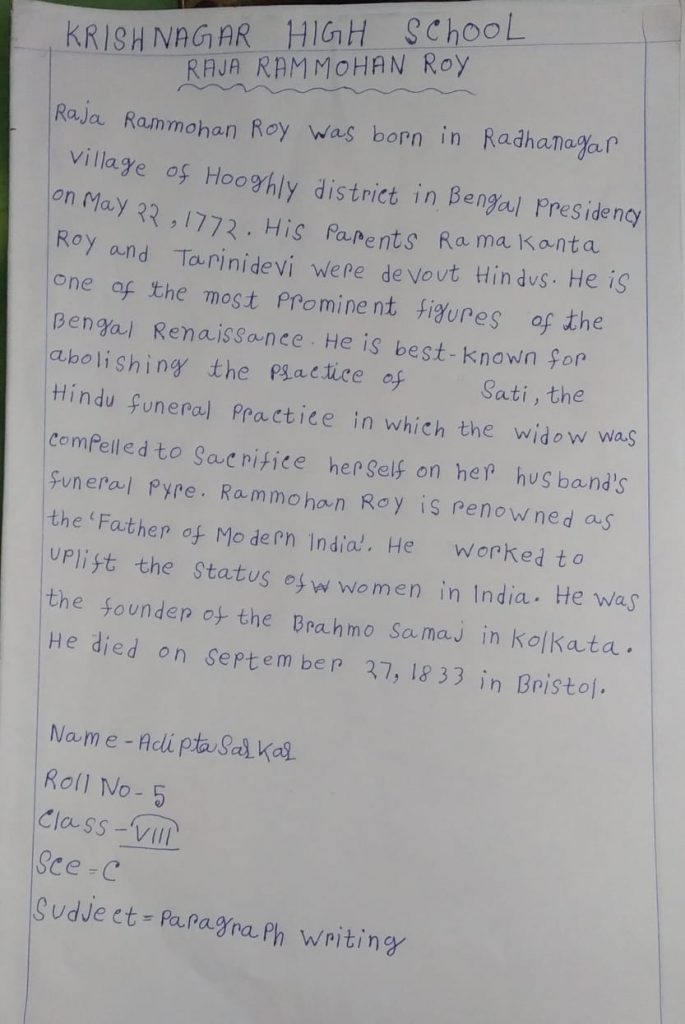 KRISHNAGAR HIGH SCHOOL
RAJA RAMMOHAN ROY
Raja Rammohan Roy was born in Radhanagar
village of Hooghly district in Bengal Presidency
on May 22, 1772. His Parents Rama Kanta
Roy and Tarinidevi were devout Hindus. He is
one of the most Prominent figures of the
Bengal Renaissance. He is best-known for
abolishing the practice of Sati, the
Hindu funeral Practice in which the widow was
compelled to Sacrifice herself on her husband's
funeral Pyre. Rammohan Roy is renowned as
the 'Father of Modern India'. He worked to
uplift the Status of women in India. He was
the founder of the Brahmo Samaj in Kolkata.
He died on September 27, 1833 in Bristol.
Name - Adipta Sarkar
Roll No - 5
Class - VIII
Sce = C
Sudject = Paragraph Writing